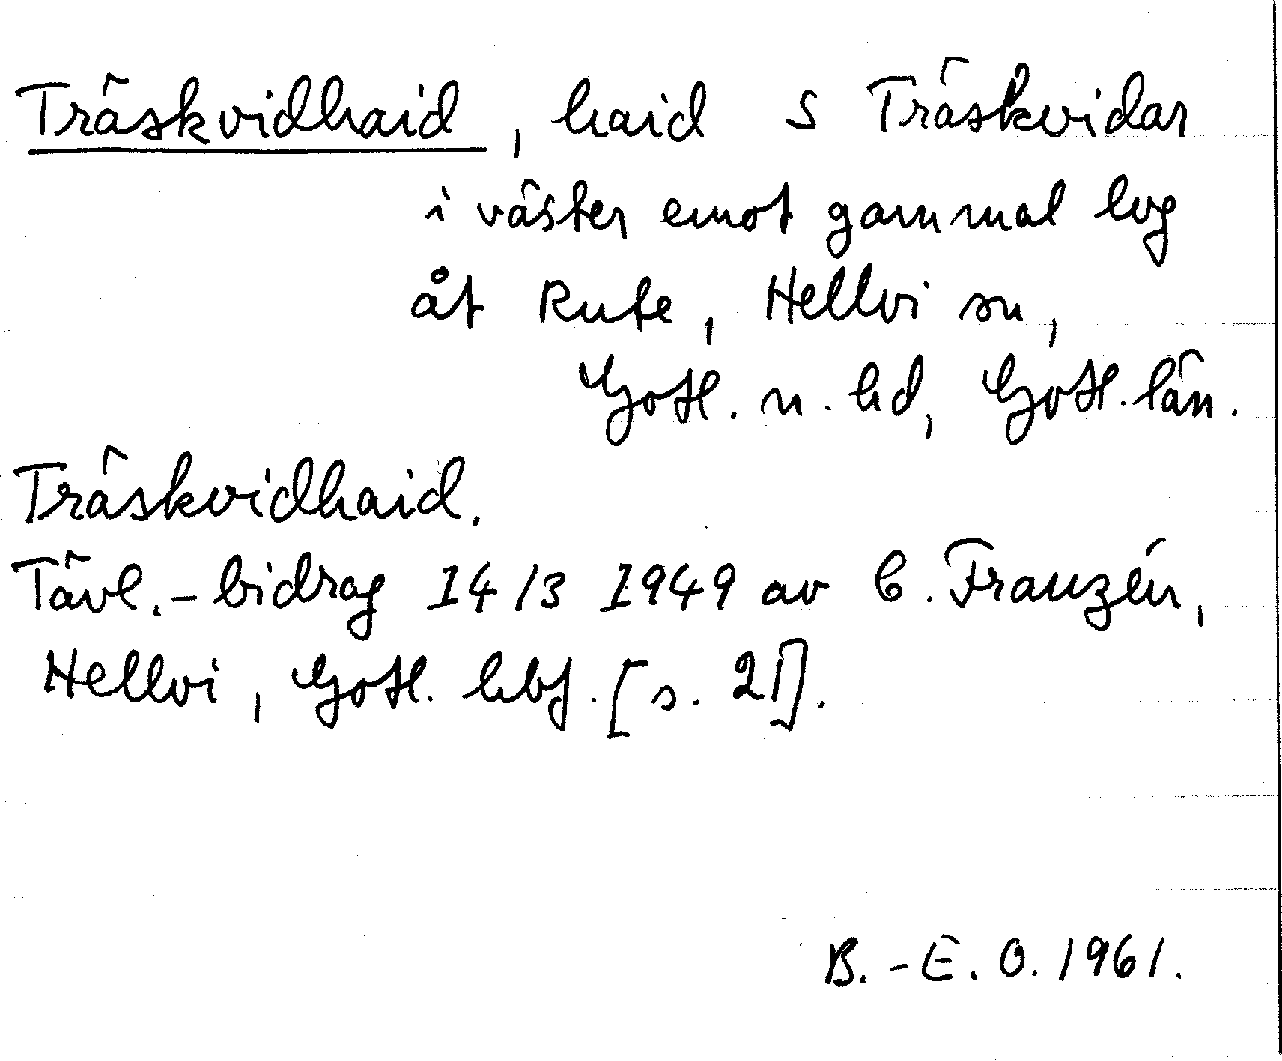 Träskvidhaid, haid S Träskvidar
i väster emot gammal lvg
åt Rute, Hellvi sn,
Gotl. n. hd, Gotl. län.
Träskvidhaid.
Tävl.-bidrag 14/3 1949 av C. Franzén,
Hellvi, Gotl. hbf. [s. 21].
B.-E. O. 1961.